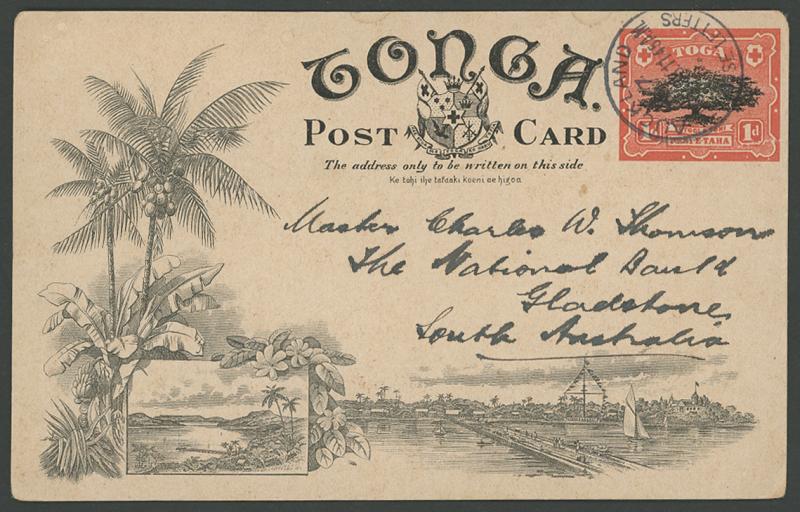 TONGA.
POST CARD
The address only to be written on this side
Ke tohi ihe tafaaki koeni ae higoa
TOGA
1d
TAHA
1d
LETTERS
AND
Master Charles W. Thomson
The National Bank Ld
Gladstone,
South Australia